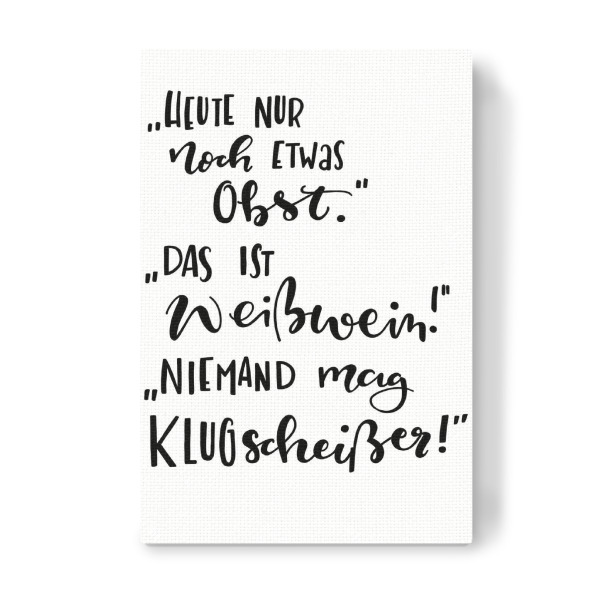 „HEUTE NUR
noch ETWAS
Obst."
„DAS IST
Weißwein!"
„NIEMAND mag
KLUGscheißer!"